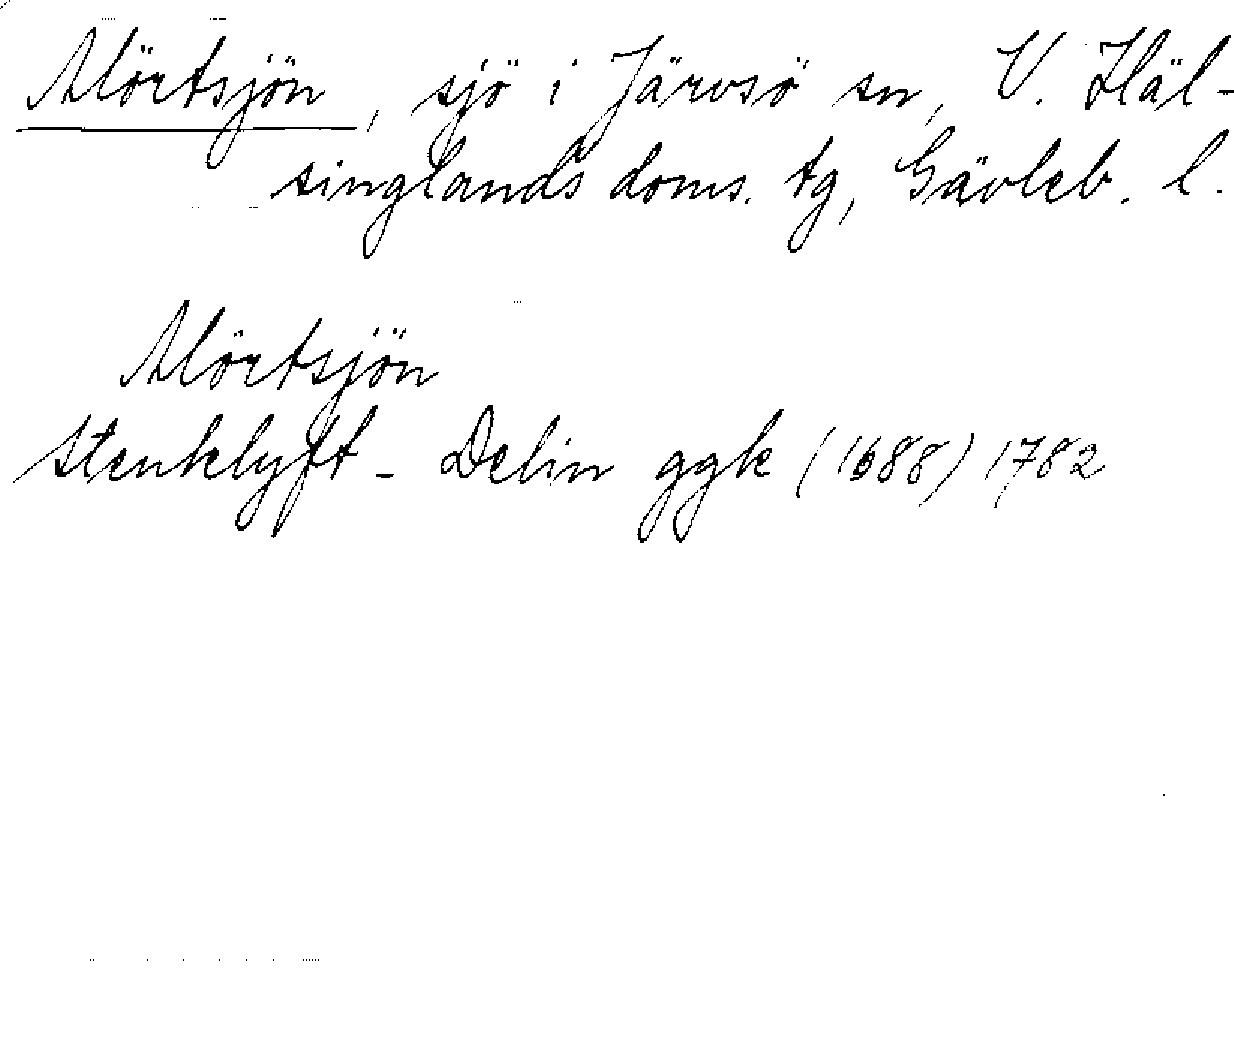 Mörtsjön, sjö i Järvsö sn, V. Häl-
singlands doms. tg, Gävleb. l.
Mörtsjön
Stenklyft - Delin ggk (1688) 1782